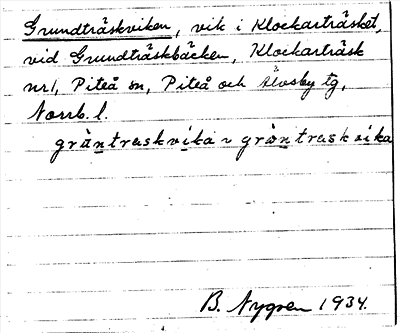 Grundträskviken, vik i Klockarträsket,
vid Grundträskbäcken, Klockarträsk
nr 1, Piteå sn, Piteå och Älvsby tg,
Norrb. l.
gràntraskvika ~ gròntraskvika
B. Nygren 1934.